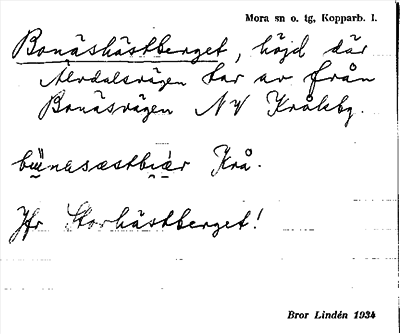 Mora sn o. tg, Kopparb. l.
Bonäshästberget, höjd där
Älvdalsvägen tar av från
Bonäsvägen NV Kråkbg.
Krå.
Jfr Storhästberget!
Bror Lindén 1934